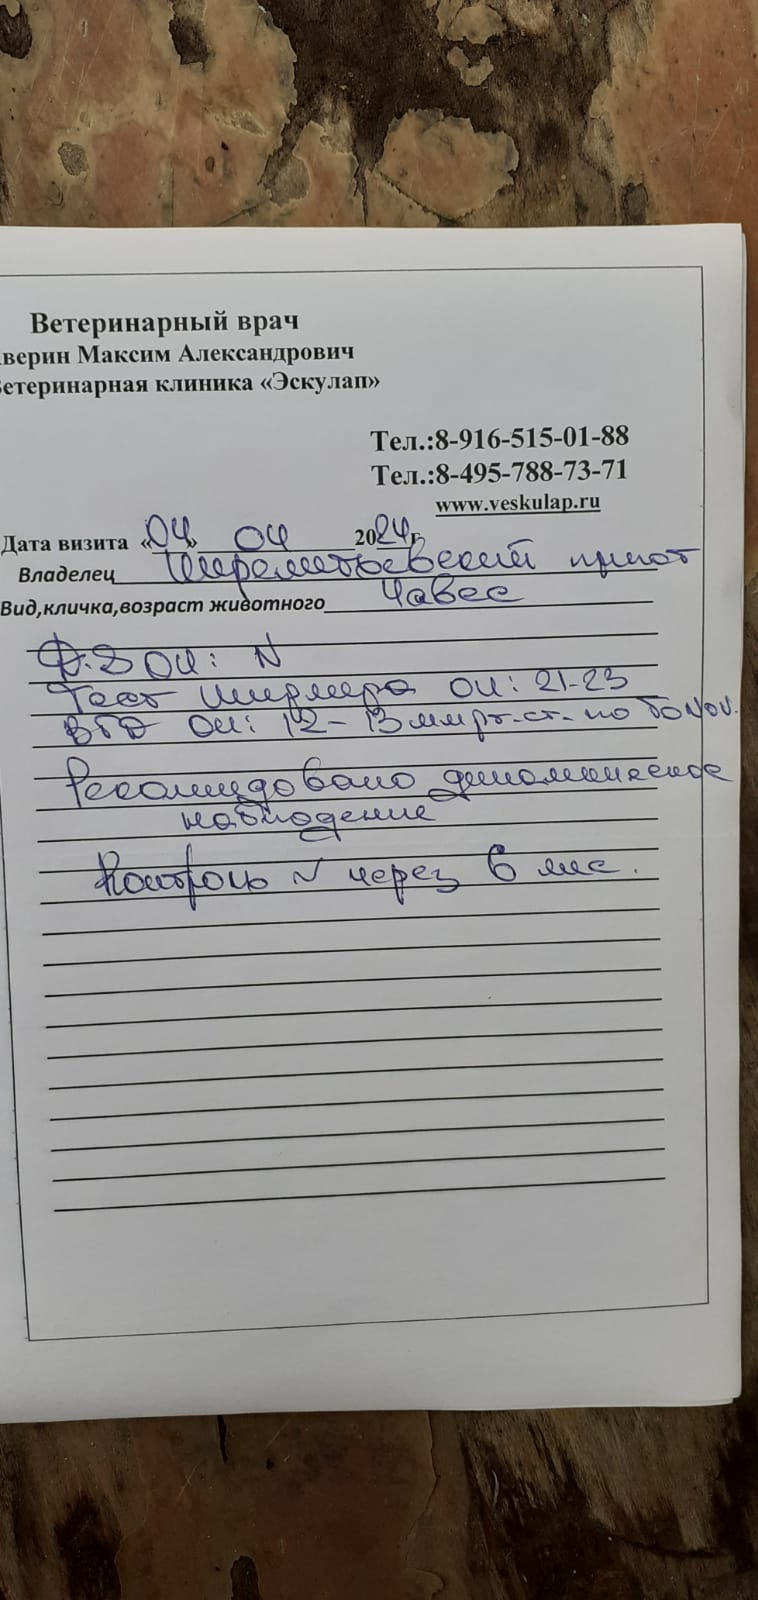 Ветеринарный врач
верин Максим Александрович
етеринарная клиника «Эскулап»
Тел.:8-916-515-01-88
Тел.:8-495-788-73-71
www.veskulap.ru
Дата визита «04» 04 2024г.
Владелец Шереметьевский приют
Вид,кличка,возраст животного Чавес
Ф.З ОИ: N
Тест Ширмера ОИ: 21-23
ВГД ОИ: 12-13 мм рт.ст. по TONOV.
Рекомендовано динамическое
наблюдение
Контроль через 6 мес.